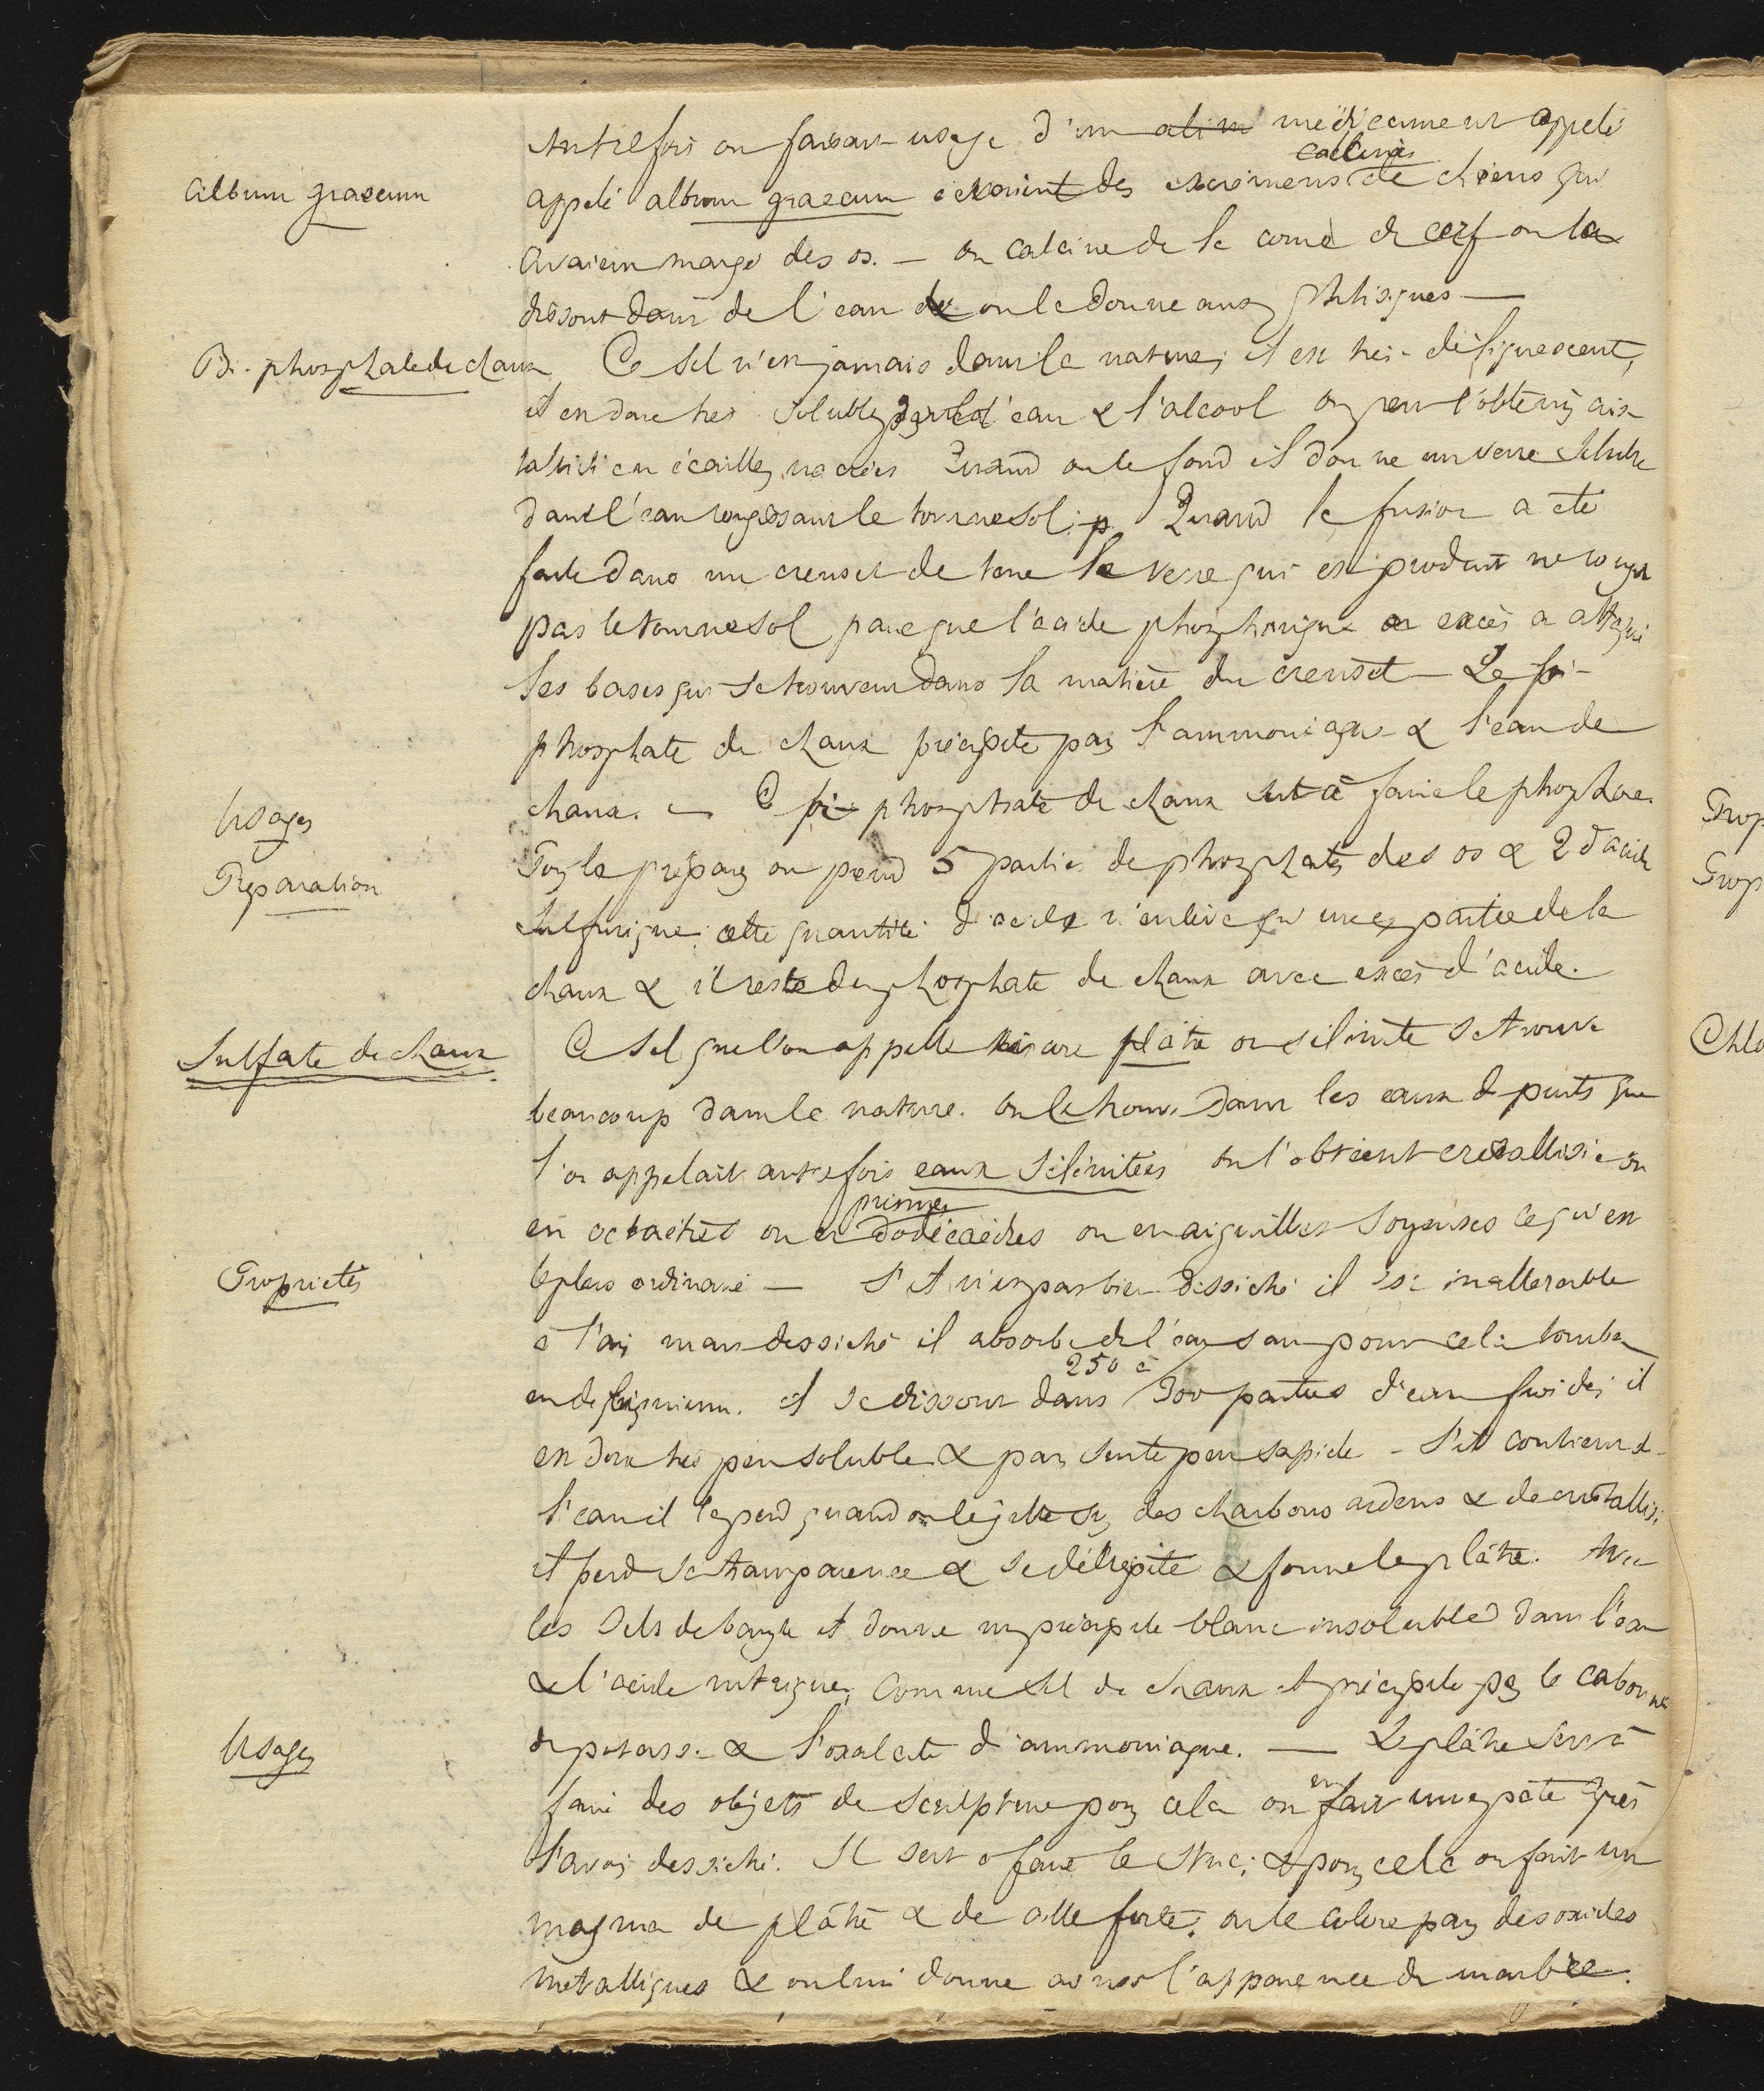 Autrefois on faisait usage d'un alim médicament appelé
calcinés
Album graecum
appelé album graecum c'etaient des excrémens de chiens qui
avaient mangé des os. — on calcine de la corne de cerf on la
dissout dans de l'eau et on le donne aux phtisiques —
Bi-phosphate de chaux
Ce sel n'est jamais dans la nature, il est très-déliquescent,
il est donc très soluble dans l'eau & l'alcool on peut l'obtenir cris-
tallisé en écailles nacrées Quand on le fond il donne un verre soluble
dans l'eau rougissant le tournesol; p Quand la fusion a été
faite dans un creuset de terre le verre qui est produit ne rougit
pas le tournesol parce que l'acide phosphorique en excès a attaqué
les bases qui se trouvent dans la matière du creuset — Le bi-
phosphate de chaux précipite par l'ammoniaque & l'eau de
chaux. — Ce bi-phosphate de chaux sert à faire le phosphore.
Usages
Préparation
Pour le préparer on prend 5 parties de phosphate des os & 2 d'acide
sulfurique; cette quantité d'acide n'enlève qu'une partie de la
chaux & il reste du phosphate de chaux avec excès d'acide.
Sulfate de chaux
Ce sel que l'on appelle encore plâtre ou sélénite se trouve
beaucoup dans la nature. on le trouve dans les eaux de puits que
l'on appelait autrefois eaux séléniteés on l'obtient cristallisé en
prismes
en octaèdres ou en dodécaèdres ou en aiguilles soyeuses ce qui est
Propriétés
le plus ordinaire — S'il n'est pas bien desséché il est inaltérable
à l'air mais desséché il absorbe de l'eau sans pour cela tomber
250 à
en deliquium. il se dissout dans 300 parties d'eau froide; il
est donc très peu soluble & par suite peu sapide — S'il contient de
l'eau il la perd quand on le jette sur des charbons ardens & de cristallisé
il perd sa transparence & se décrépite & forme le plâtre. Avec
les sels de baryte il donne un précipité blanc insoluble dans l'eau
& l'acide nitrique; comme sel de chaux il précipite par le carbonate
de potasse & l'oxalate d'ammoniaque. — Le plâtre sert à
Usages
en
faire des objets de sculpture pour cela on fait une pâte après
l'avoir desséché. Il sert à faire le stuc; & pour cela on fait un
magma de plâtre & de colle forte; on le colore par des oxides
métalliques & on lui donne alors l'apparence de marbre.
Prop
Prop
Chlo